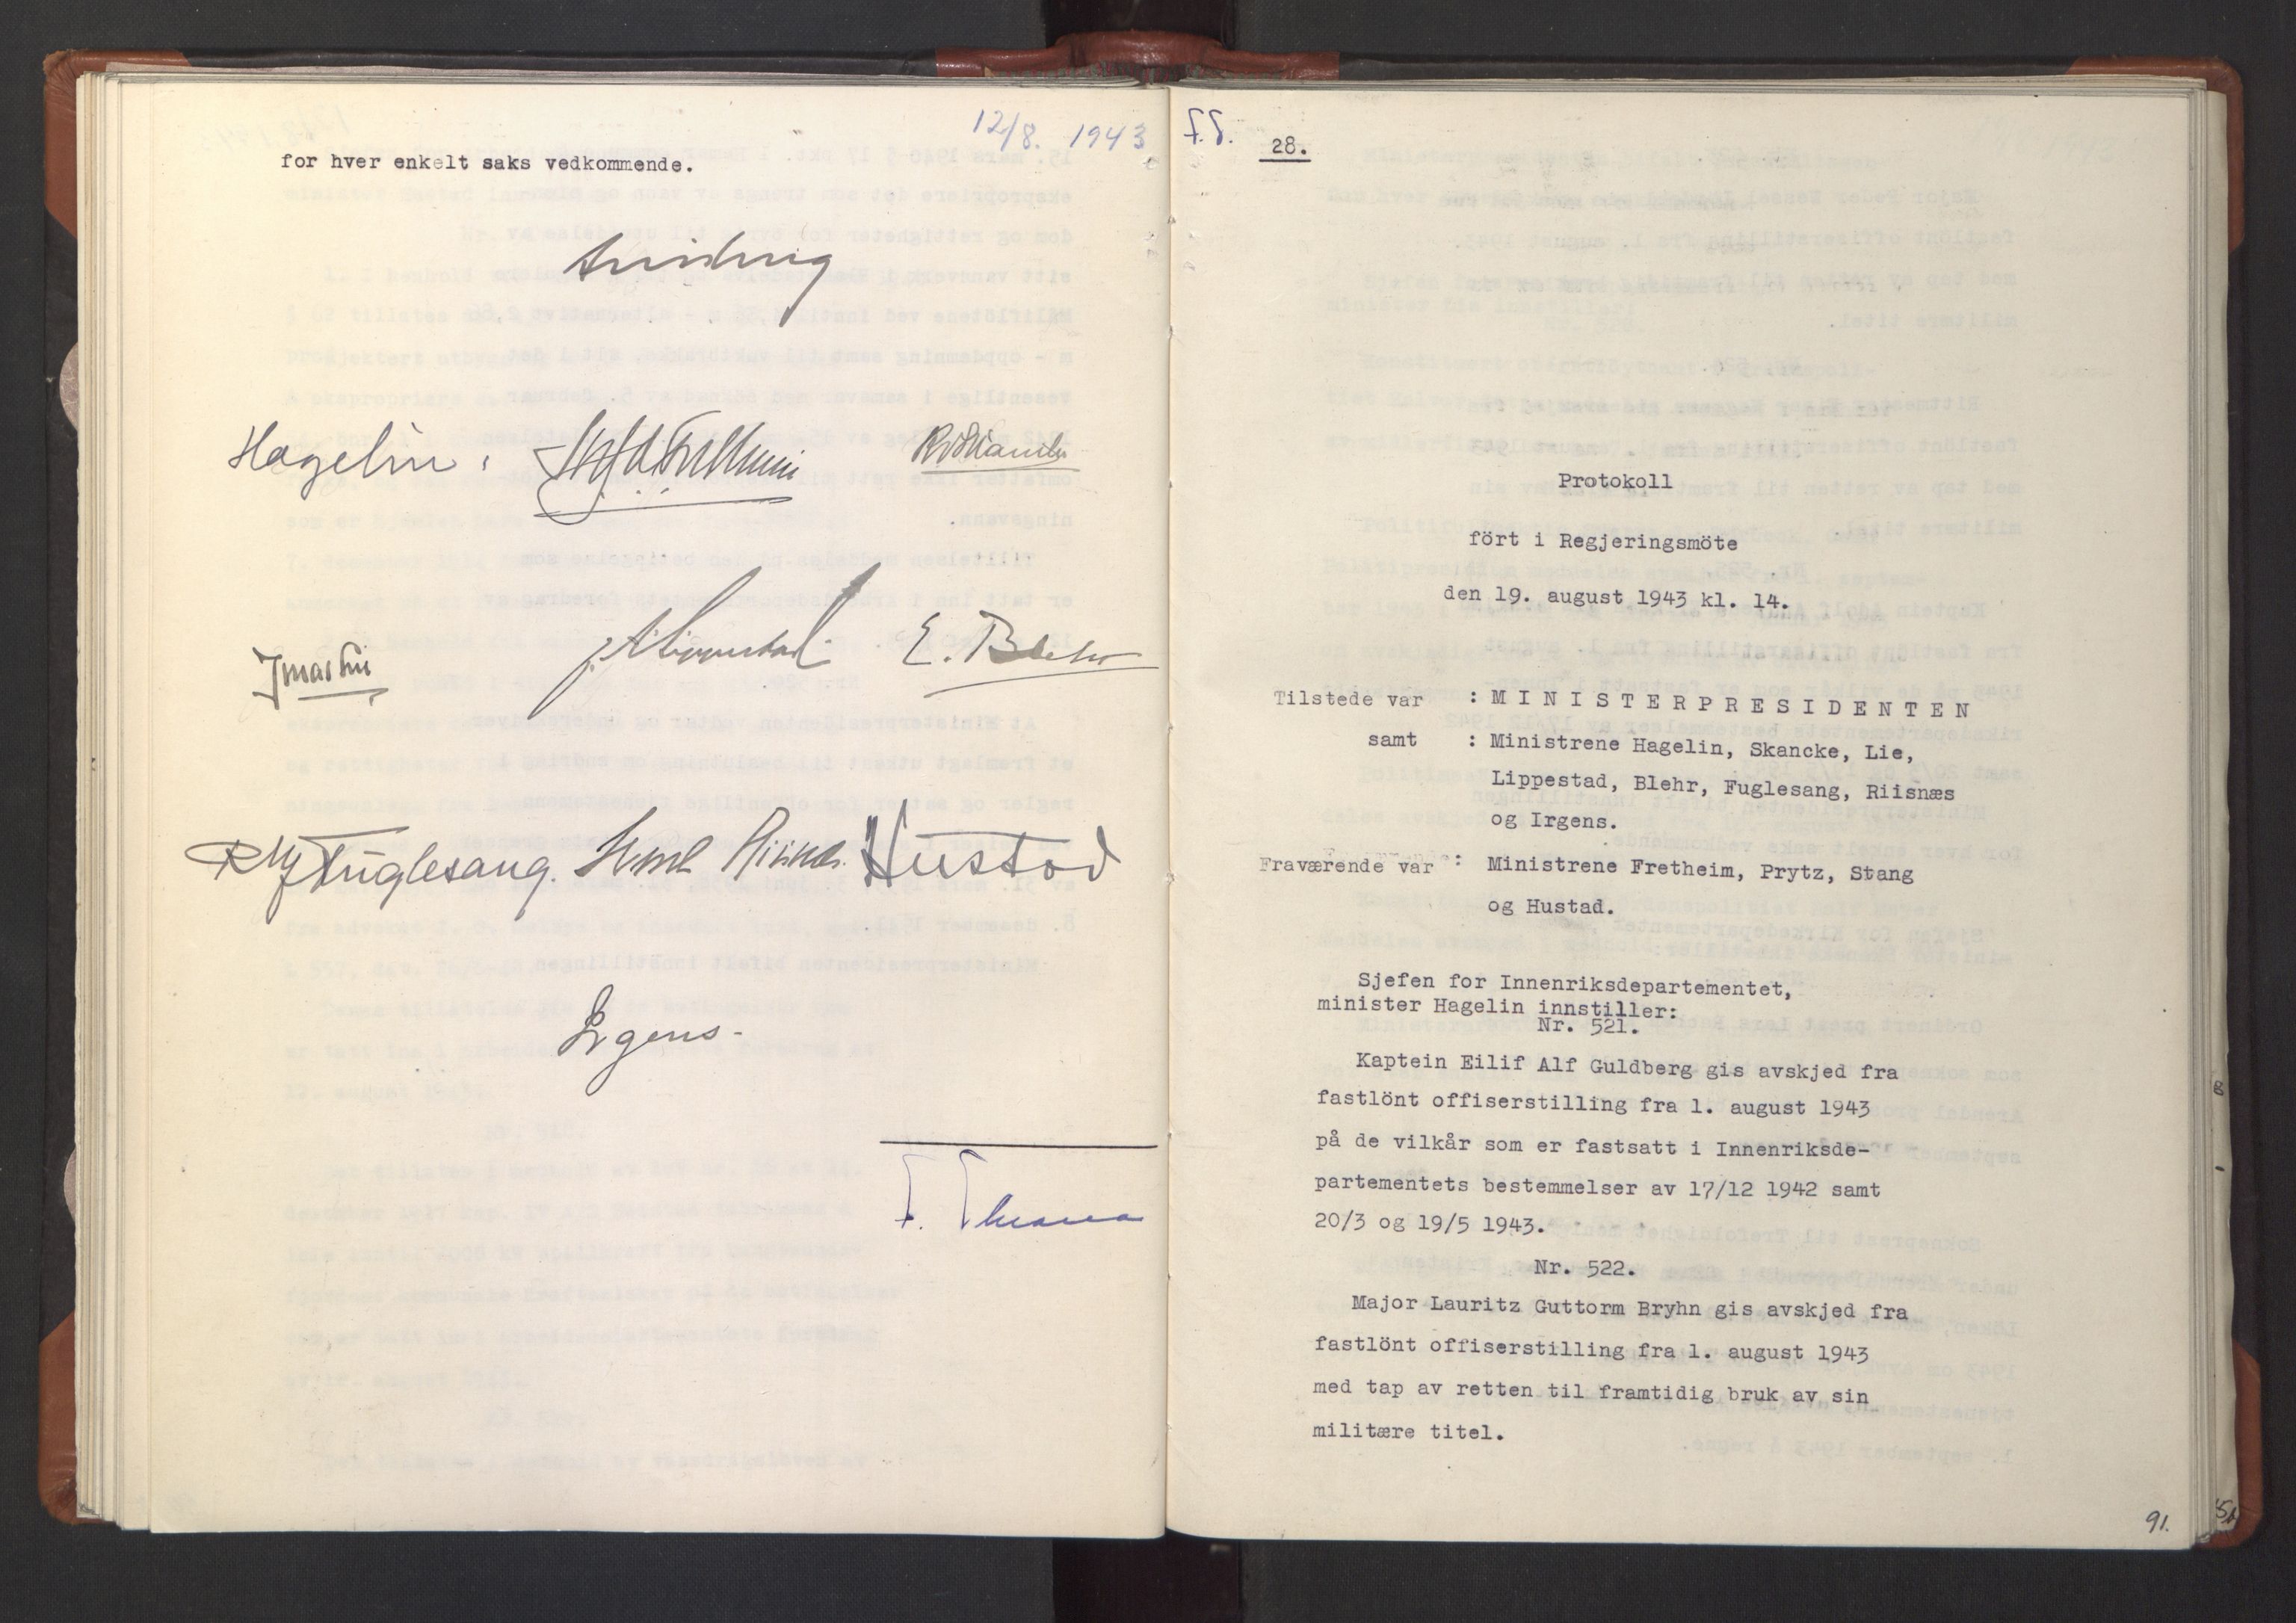 12/8. 1943
for hver enkelt saks vedkommende.
Hagelin
R. Skancke
E. Blehr
Fuglesang.
Hustad
Irgens
28.
Protokoll
fört i Regjeringsmöte
den 19. august 1943 kl. 14.
Tilstede var : MINISTERPRESIDENTEN
samt : Ministrene Hagelin, Skancke, Lie,
Lippestad, Blehr, Fuglesang, Riisnæs
og Irgens.
Fraværende var : Ministrene Fretheim, Prytz, Stang
og Hustad.
Sjefen for Innenriksdepartementet,
minister Hagelin innstiller:
Nr. 521.
Kaptein Eilif Alf Guldberg gis avskjed fra
fastlönt offiserstilling fra 1. august 1943
på de vilkår som er fastsatt i Innenriksde-
partementets bestemmelser av 17/12 1942 samt
20/3 og 19/5 1943.
Nr. 522.
Major Lauritz Guttorm Bryhn gis avskjed fra
fastlönt offiserstilling fra 1. august 1943
med tap av retten til framtidig bruk av sin
militære titel.
91.